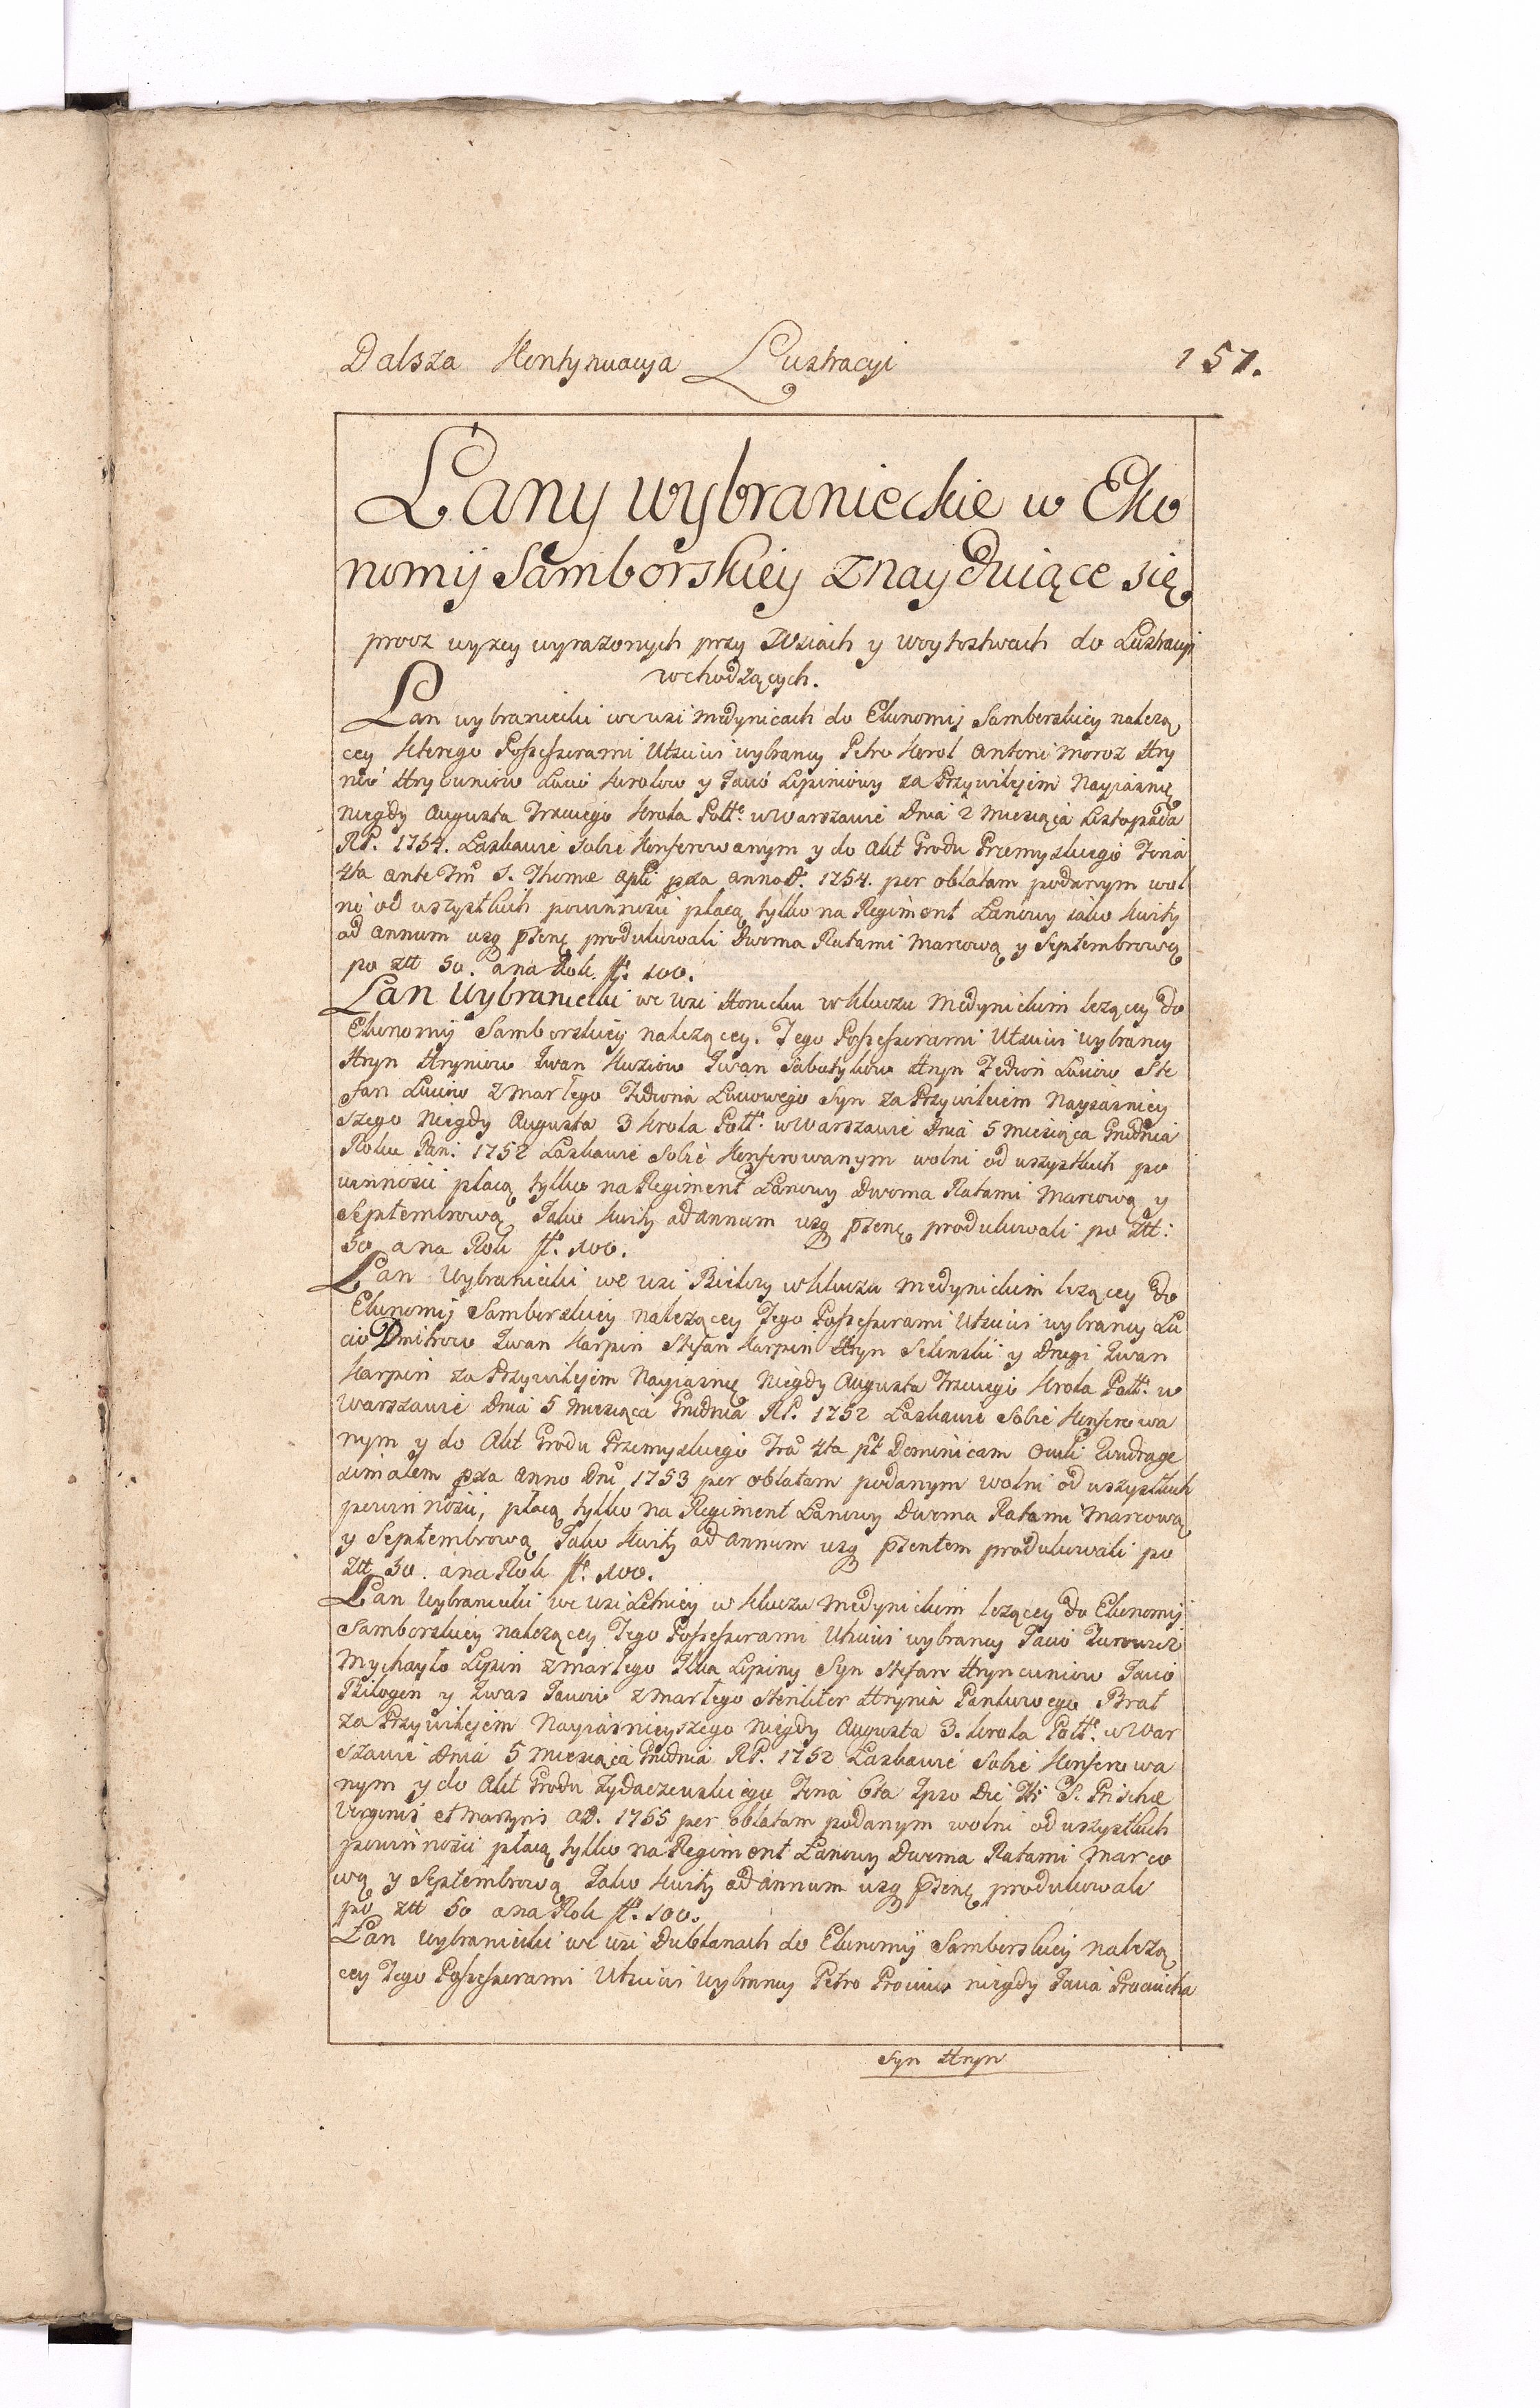 Dalsza Kontynuacya Lustracyi 157.
Łany wybranieckie w Eko
nomij Samborskiey znayduiące się
procz wyzey wyrazonych przy Wsiach y Woytostwach do Lustracyi
wchodzących.
Łan wybraniecki we wsi Medynicach do Ekonomij Samborskiey nalezą
cey ktorego Possessorami Utściwi wybrancy Petro Korol Antoni Moroz Hry
nio Hrycuniow Łucio Korolow y Jacio Lipiniowy za Przywilejem Nayiasnię
Niegdy Augusta Trzeciego Krola Polle. w Warszawie Dnia 2 Miesiąca Listopada
RP. 1754. Łaskawie sobie konferowanym y do Akt Grodu Przemyskiego Feria
4ta ante Fm S. Thomæ Apli pxa anno D. 1754. per oblatam podanym wol
ni od wszystkich powinnosci płacą tylko na Regiment Łanowy iako kwity
ad annum usq pñtem produkowali Dwoma Ratami Marcową y Septembrową
po złł 50. a na Rok fl. 100.
Łan Wybraniecki we wsi Horucku w kluczu Medynickim lezącey do
Ekonomij Samborskiey nalezącey. Tego Possessorami Utściwi wybrancy
Hryn Hryniow Iwan Kuziow Iwan Sabutykow Hryn Fedion Łuciow Ste
fan Łuciow zmarłego Fediona Łuciowego Syn za Przywilejem Nayiasniey
szego Niegdy Augusta 3 Krola Poll: w Warszawie Dnia 5 Miesiąca Grudnia
Roku Pań. 1752 Łaskawie Sobie konferowanym wolni od wszystkich po
winnosci płacą tylko na Regiment Łanowy Dwoma Ratami Marcową y
Septembrową Iako kwity ad annum usq pñtem produkowali po Złł:
50 a na Rok fl. 100.
Łan Wybraniecki we wsi Bilczy w kluczu Medynickim lezącey do
Ekonomij Samborskiey nalezącey Tego Possessorami Utściwi wybrancy Łu
cio Dmitrow Iwan Karpin Stefan Karpin Hryn Selinski y Drugi Iwan
Karpin za Przywilejem Nayiasnię Niegdy Augusta Trzeciego Krola Poll. w
Warszawie Dnia 5 Miesiąca Grudnia RP. 1752 Łaskawie Sobie konferowa
nym y do Akt Grodu Przemyskiego Fria 4ta pt Dominicam Oculi Quadrage
simalem pxa Anno Dni 1753 per oblatam podanym wolni od wszystkich
powinnosci, płacą tylko na Regiment Łanowy Dwoma Ratami Marcową
y Septembrową Iako kwity ad annum usq pñtem produkowali po
złł 50. a na Rok fl. 100.
Łan Wybraniecki we wsi Letniey w kluczu Medynickim lezącey do Ekonomij
Samborskiey nalezącey Tego Possessorami Utściwi wybrancy Jacio Jurowicz
Mychayło Lipin zmarłego Ilka Lipiny Syn Stefan Hryncuniow Jacio
Bilogen y Iwas Jaciow zmarłego Steriliter Hrynia Pankowego Brat
za Przywilejem Nayiasnieyszego Niegdy Augusta 3. Krola Poll. w War
szawie Dnia 5 Miesiąca Grudnia RP. 1752 Łaskawie Sobie konferowa
nym y do Akt Grodu Zydaczewskiego Feria 6ta Ipso Die Fti S. Priscæ
Virginis et Martyris AD. 1755 per oblatam podanym wolni od wszystkich
powinnosci płacą tylko na Regiment Łanowy Dwoma Ratami Marco
wą y Septembrową Iako kwity ad annum usq pñtem produkowali
po złł 50 a na Rok fl. 100.
Łan wybraniecki we wsi Dublanach do Ekonomij Samborskiey nalezą
cey Tego Possessorami Utściwi Wybrancy Petro Prociow niegdy Jacia Prociucha
Syn Hryn